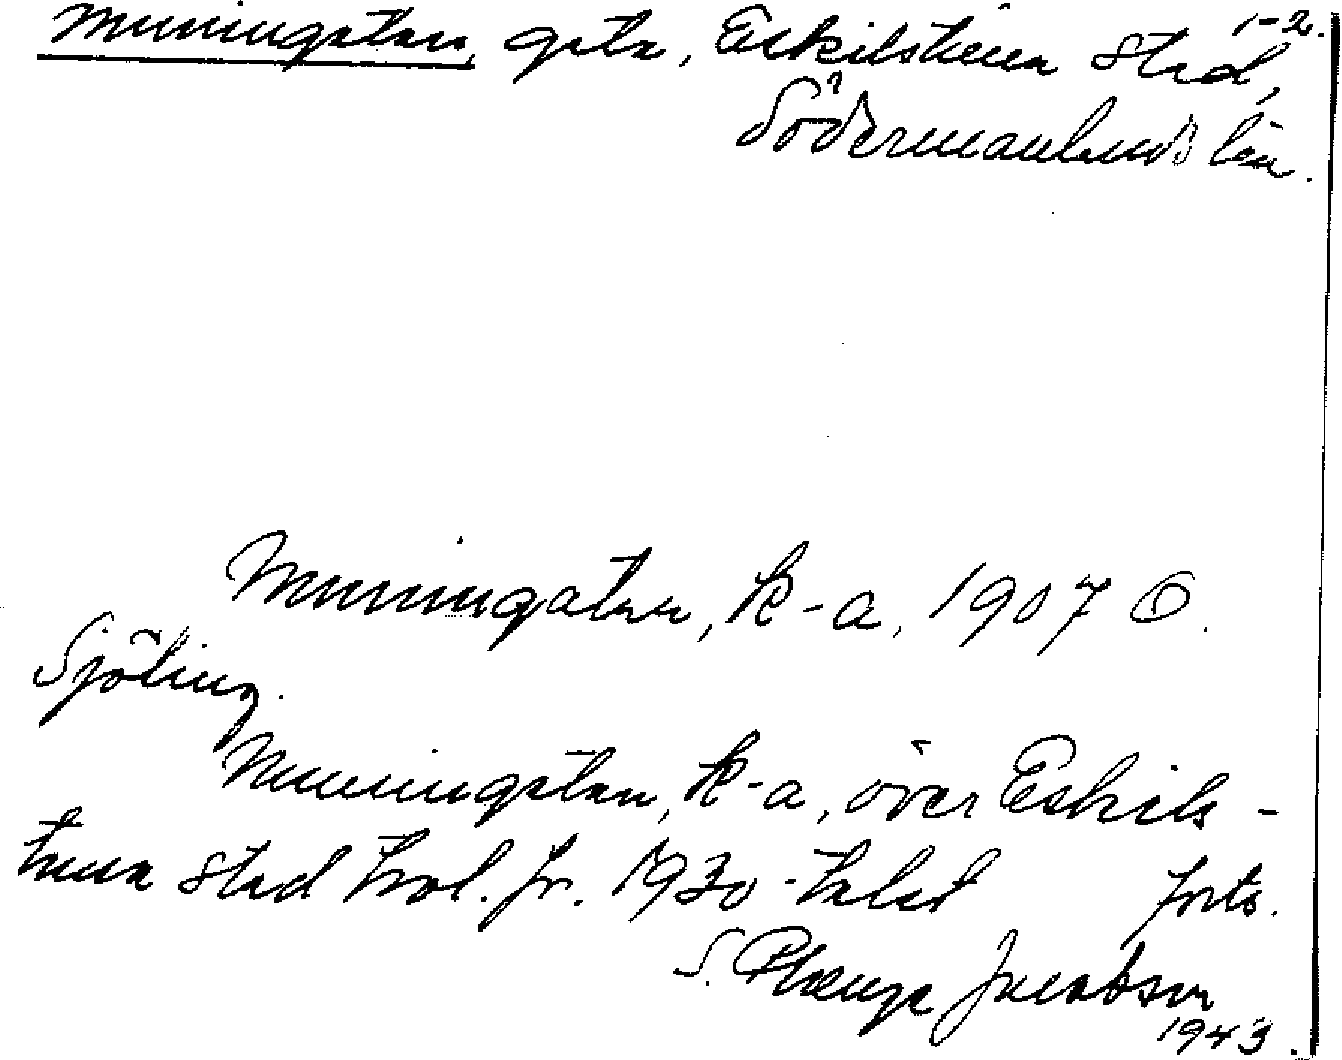 1-2.
Muningatan, gata, Eskilstuna stad,
Södermanlands län.
Muningatan, k-a, 1907 O.
Sjöling.
Muningatan, k-a, över Eskils-
tuna stad trol. fr. 1930-talet forts.
S. Jacobson
1943.